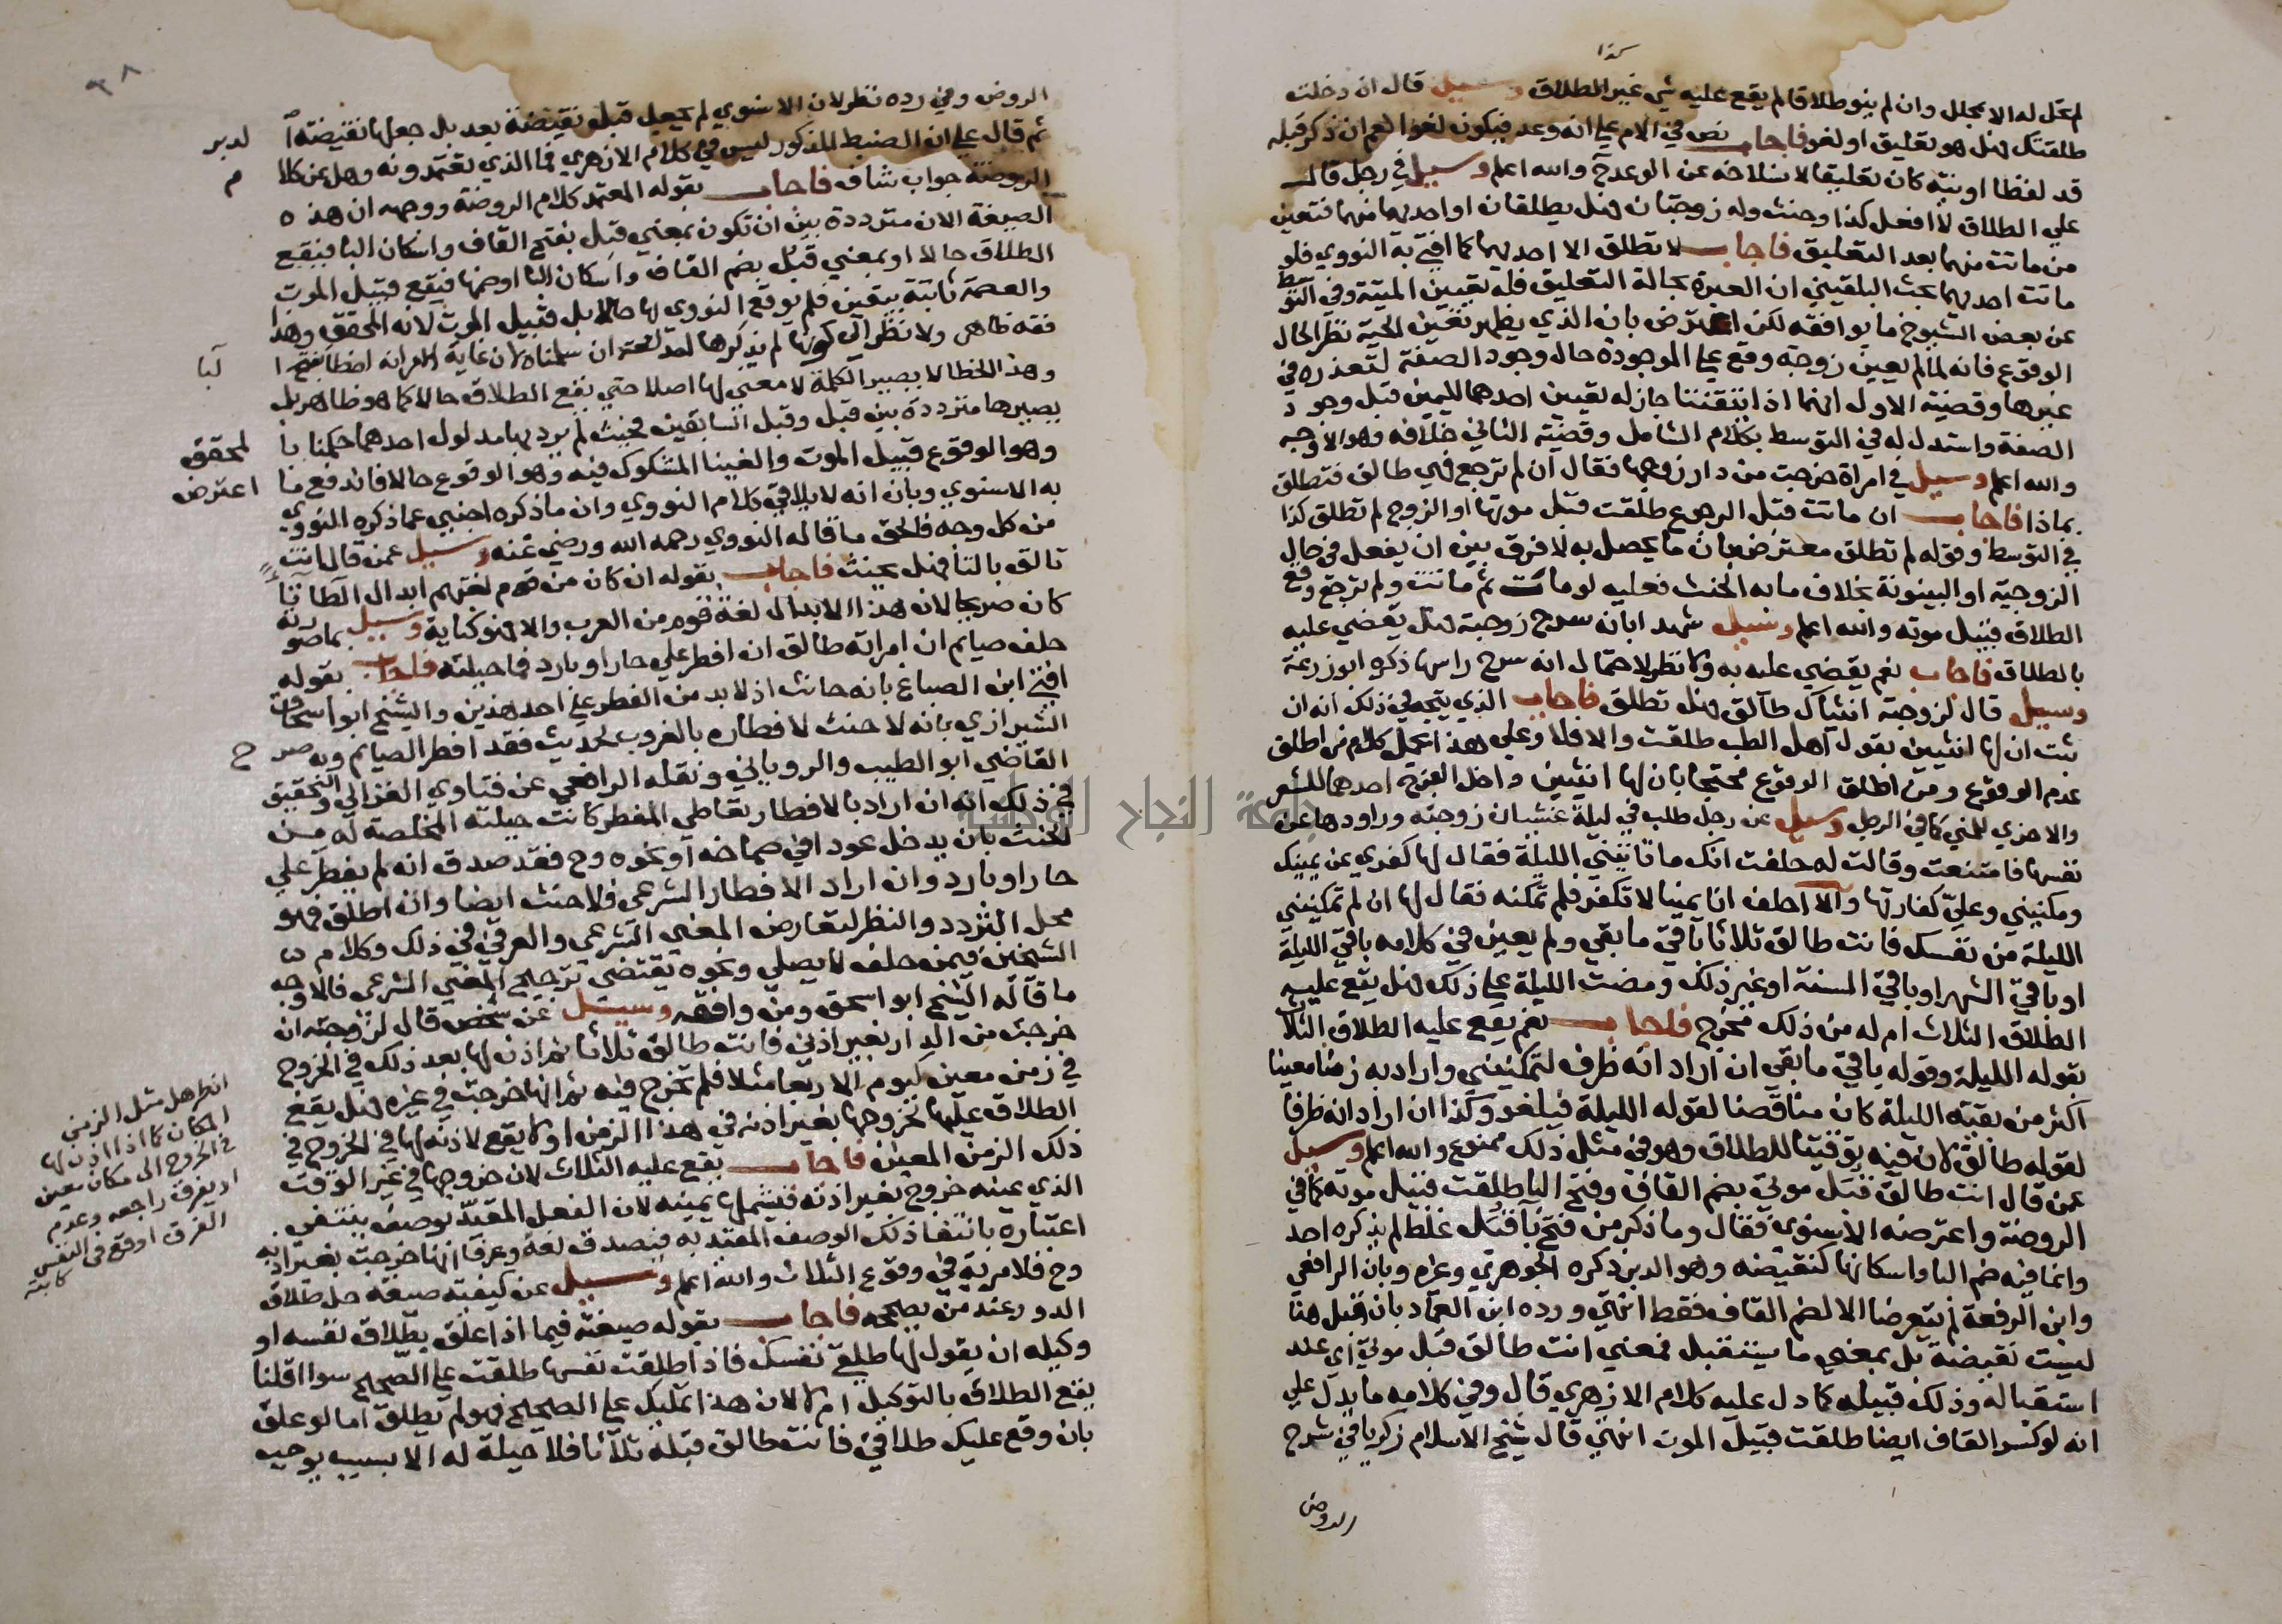 كذا
لم تحل له الا بمحلل وان لم ينو طلاقا لم يقع عليه شي غير الطلاق وسيل قال ان دخلت
طلقتك هل هو تعليق او لغو فاجاب نص في الام علي انه وعد فيكون لغوا نعم ان ذكر قبله
قد لفظا او نية كان تعليقا لانسلاخه عن الوعد ح والله اعلم وسيل في رجل قال
علي الطلاق لا افعل كذا وحنث وله زوجتان هل يطلقان او احديهما منهما فتعين
من ماتت منهما بعد التعليق فاجاب لا تطلق الا احديهما كما افتي به النووي فلو
ماتت احديهما بحث البلقيني ان العبرة بحالة التعليق فله تعيين الميتة وفي التوسط
عن بعض الشيوخ ما يوافقه لكن اعترض بان الذي يظهر تعين الحية نظرا لحال
الوقوع فانه لما لم يعين زوجة وقع علي الموجودة حال وجود الصفة لتعذره في
غيرها وقضية الاول انهما اذا اتفقتا جاز له تعيين احدهما لليمين قبل وجود
الصفة واستدل له في التوسط بكلام الشامل وقضية الثاني خلافه وهو الاوجه
والله اعلم وسيل في امراة خرجت من دار زوجها فقال ان لم ترجع فهي طالق فتطلق
بماذا فاجاب ان ماتت قبل الرجوع طلقت قبل موتها او الزوج لم تطلق كذا
في التوسط وقوله لم تطلق معترض بان ما يحصل به لا فرق بين ان يفعل في حال
الزوجية او البينونة بخلاف ما به الحنث فعليه لو مات ثم ماتت ولم ترجع وقع
الطلاق قبيل موته والله اعلم وسيل شهدا بانه سرح زوجته هل يقضي عليه
بالطلاق فاجاب نعم يقضي عليه به ولا نظر لاحتمال انه سرح راسها ذكره ابو زرعة
وسيل قال لزوجته انثياك طالق هل تطلق فاجاب الذي يتجه في ذلك انه ان
ثبت ان لها انثيين بقول اهل الطب طلقت والا فلا وعلي هذا يحمل كلام من اطلق
عدم الوقوع ومن اطلق الوقوع محتجا بان لها انثيين داخل الفرج احدهما للشعر
والاخري للمني كما في الرجل وسيل عن رجل طلب في ليلة غشيان زوجته وراودها عن
نفسها فامتنعت وقالت له حلفت انك ما تاتيني الليلة فقال لها كفري عن يمينك
ومكنيني وعلي كفارتها والا احلف انا يمينا لا تكفر فلم تمكنه فقال لها ان لم تمكنيني
الليلة من نفسك فانت طالق ثلاثا باقي ما بقي ولم يعين في كلامه باقي الليلة
او باقي الشهر او باقي السنة او غير ذلك ومضت الليلة علي ذلك هل يقع عليه
الطلاق الثلاث ام له من ذلك مخرج فاجاب نعم يقع عليه الطلاق الثلاث
بقوله الليلة وقوله باقي ما بقي ان اراد انه ظرف لتمكينني واراد به زمنا معينا
اكثر من بقية الليلة كان مناقضا لقوله الليلة فيلغو وكذا ان اراد انه ظرفا
لقوله طالق لان فيه توقيتا للطلاق وهو في مثل ذلك ممنوع والله اعلم وسيل
عمن قال انت طالق قبل موتي بضم القاف وفتح البا طلقت قبيل موته كما في
الروضة واعترضه الاسنوي فقال وما ذكر من فتح با قبل غلط لم يذكره احد
وانما فيه ضم البا واسكانها كنقيضه وهو الدبر ذكره الجوهري وغره وبان الرافعي
وابن الرفعة لم يتعرضا الا لضم القاف فقط انتهي ورده ابن العماد بان قبل هنا
ليست نقيضة بل بمعني ما يستقبل فمعني انت طالق قبل موتي اي عند
استقباله وذلك قبيله كما دل عليه كلام الازهري قال وفي كلامه ما يدل علي
انه لو كسر القاف ايضا طلقت قبيل الموت انتهي قال شيخ الاسلام زكريا في شرح
الروض
٣٨
الروض وفي رده نظر لان الاسنوي لم يجعل قبل نقيضة بعد بل جعلها نقيضة ا لدبر
ثم قال علي ان الضبط المذكور ليس في كلام الازهري فما الذي تعتمدونه وهل عن كلا م
الروضة جواب شاف فاجاب بقوله المعتمد كلام الروضة ووجهه ان هذه
الصيغة الان مترددة بين ان تكون بمعني قبل بفتح القاف واسكان البا فيقع
الطلاق حالا او بمعني قبل بضم القاف واسكان البا او ضمها فيقع قبيل الموت
والعصمة ثابتة بيقين فلم يوقع النووي لها حالا بل قبيل الموت لانه المحقق وهذا
فقه ظاهر ولا نظر الي كونها لم يذكرها احد لغة ان سلمناه لان غاية الامر انه اخطا بفتح ا لبا
وهذا الخطا لا يصير الكلمة لا معني لها اصلا حتي يقع الطلاق حالا كما هو ظاهر بل
يصيرها مترددة بين قبل وقبل السابقين فحيث لم يرد بها مدلول احدهما حكمنا با لمحقق
وهو الوقوع قبيل الموت والغينا المشكوك فيه وهو الوقوع حالا فاندفع ما اعترض
به الاسنوي وبان انه لا يلاقي كلام النووي وان ما ذكره اجنبي عما ذكره النووي
من كل وجه فالحق ما قاله النووي رحمه الله ورضي عنه وسيل عمن قال انت
تالق بالتا هل يحنث فاجاب بقوله ان كان من قوم لغتهم ابدال الطا تا
كان صريحا لان هذا الابدال لغة قوم من العرب والا فهو كناية وسيل بما صورته
حلف صايم ان امراته طالق ان افطر علي حار او بارد فما حيلته فاجاب بقوله
افتي ابن الصباغ بانه حانث اذ لا بد من الفطر علي احد هذين والشيخ ابو اسحاق
الشيرازي بانه لا حنث لا فطاره بالغروب لحديث فقد افطر الصايم وبه صر ح
القاضي ابو الطيب والروياني ونقله الرافعي عن فتاوي الغزالي والتحقيق
في ذلك انه ان اراد بالافطار تعاطي المفطر كانت حيلته المخلصة له من
الحنث بان يدخل عودا في صماخه او نحوه وح فقد صدق انه لم يفطر علي
حار او بارد وان اراد الافطار الشرعي فلا حنث ايضا وان اطلق فهو
محل التردد والنظر لتعارض المعني الشرعي والعرفي في ذلك وكلام
الشيخين فيمن حلف لا يصلي ونحوه يقتضي ترجيح المعني الشرعي فالاوجه
ما قاله الشيخ ابو اسحق ومن وافقه وسيل عن شخص قال لزوجته ان
خرجت من الدار بغير اذني فانت طالق ثلاثا ثم اذن لها بعد ذلك في الخروج
في زمن معين كيوم الاربعا مثلا فلم تخرج فيه ثم انها خرجت في غيره هل يقع
الطلاق عليها لخروجها بغير اذنه في هذا الزمن او لا يقع لاذنه لها في الخروج في
ذلك الزمن المعين فاجاب يقع عليه الثلاث لان خروجها في غير الوقت
الذي عينه خروج بغير اذنه فيشملها يمينه لان الفعل المقيد بوصف ينتفي
اعتباره بانتفا ذلك الوصف المقيد به فيصدق لغة وعرفا انها خرجت بغير اذنه
وح فلا مرية في وقوع الثلاث والله اعلم وسيل عن كيفية صيغة حل طلاق
الدور عند من يصححه فاجاب بقوله صيغته فيما اذا علق بطلاق نفسه او
وكيله ان يقول لها طلقي نفسك فاذا طلقت نفسها طلقت علي الصحيح سوا اقلنا
يقع الطلاق بالتوكيل ام لا لان هذا تمليك علي الصحيح فهو لم يطلق اما لو علق
بان وقع عليك طلاقي فانت طالق قبله ثلاثا فلا حيلة له الا بسبب يوجب
انظر هل مثل الزمن
المكان كما اذا اذن لها
في الخروج الى مكان معين
او يفرق راجعه وعدم
الفرق اوقع في النفس
كاتبه
جامعة النجاح الوطنية